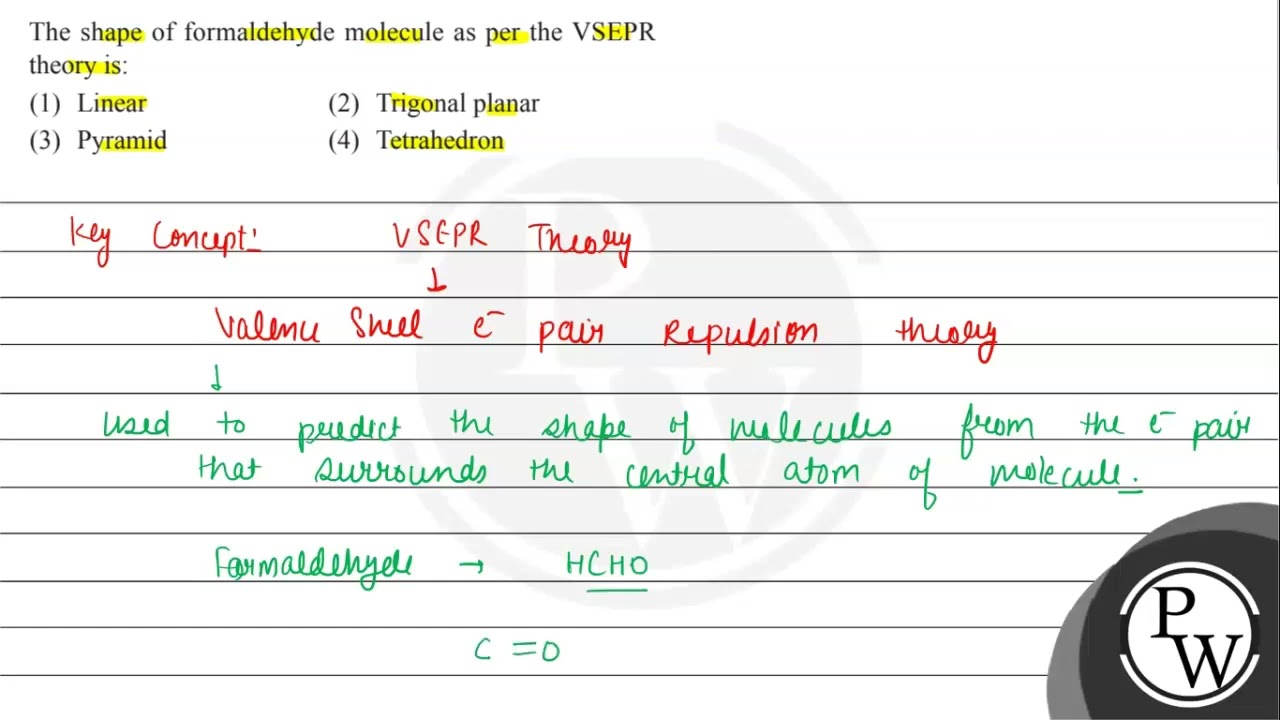 The shape of formaldehyde molecule as per the VSEPR
theory is:
(1) Linear (2) Trigonal planar
(3) Pyramid (4) Tetrahedron
Key Concept:
VSEPR Theory
↓
Valence Shell e⁻ pair Repulsion theory
↓
used to predict the shape of molecules from the e⁻ pair
that surrounds the central atom of molecule.
Formaldehyde → HCHO
C = O
P
W